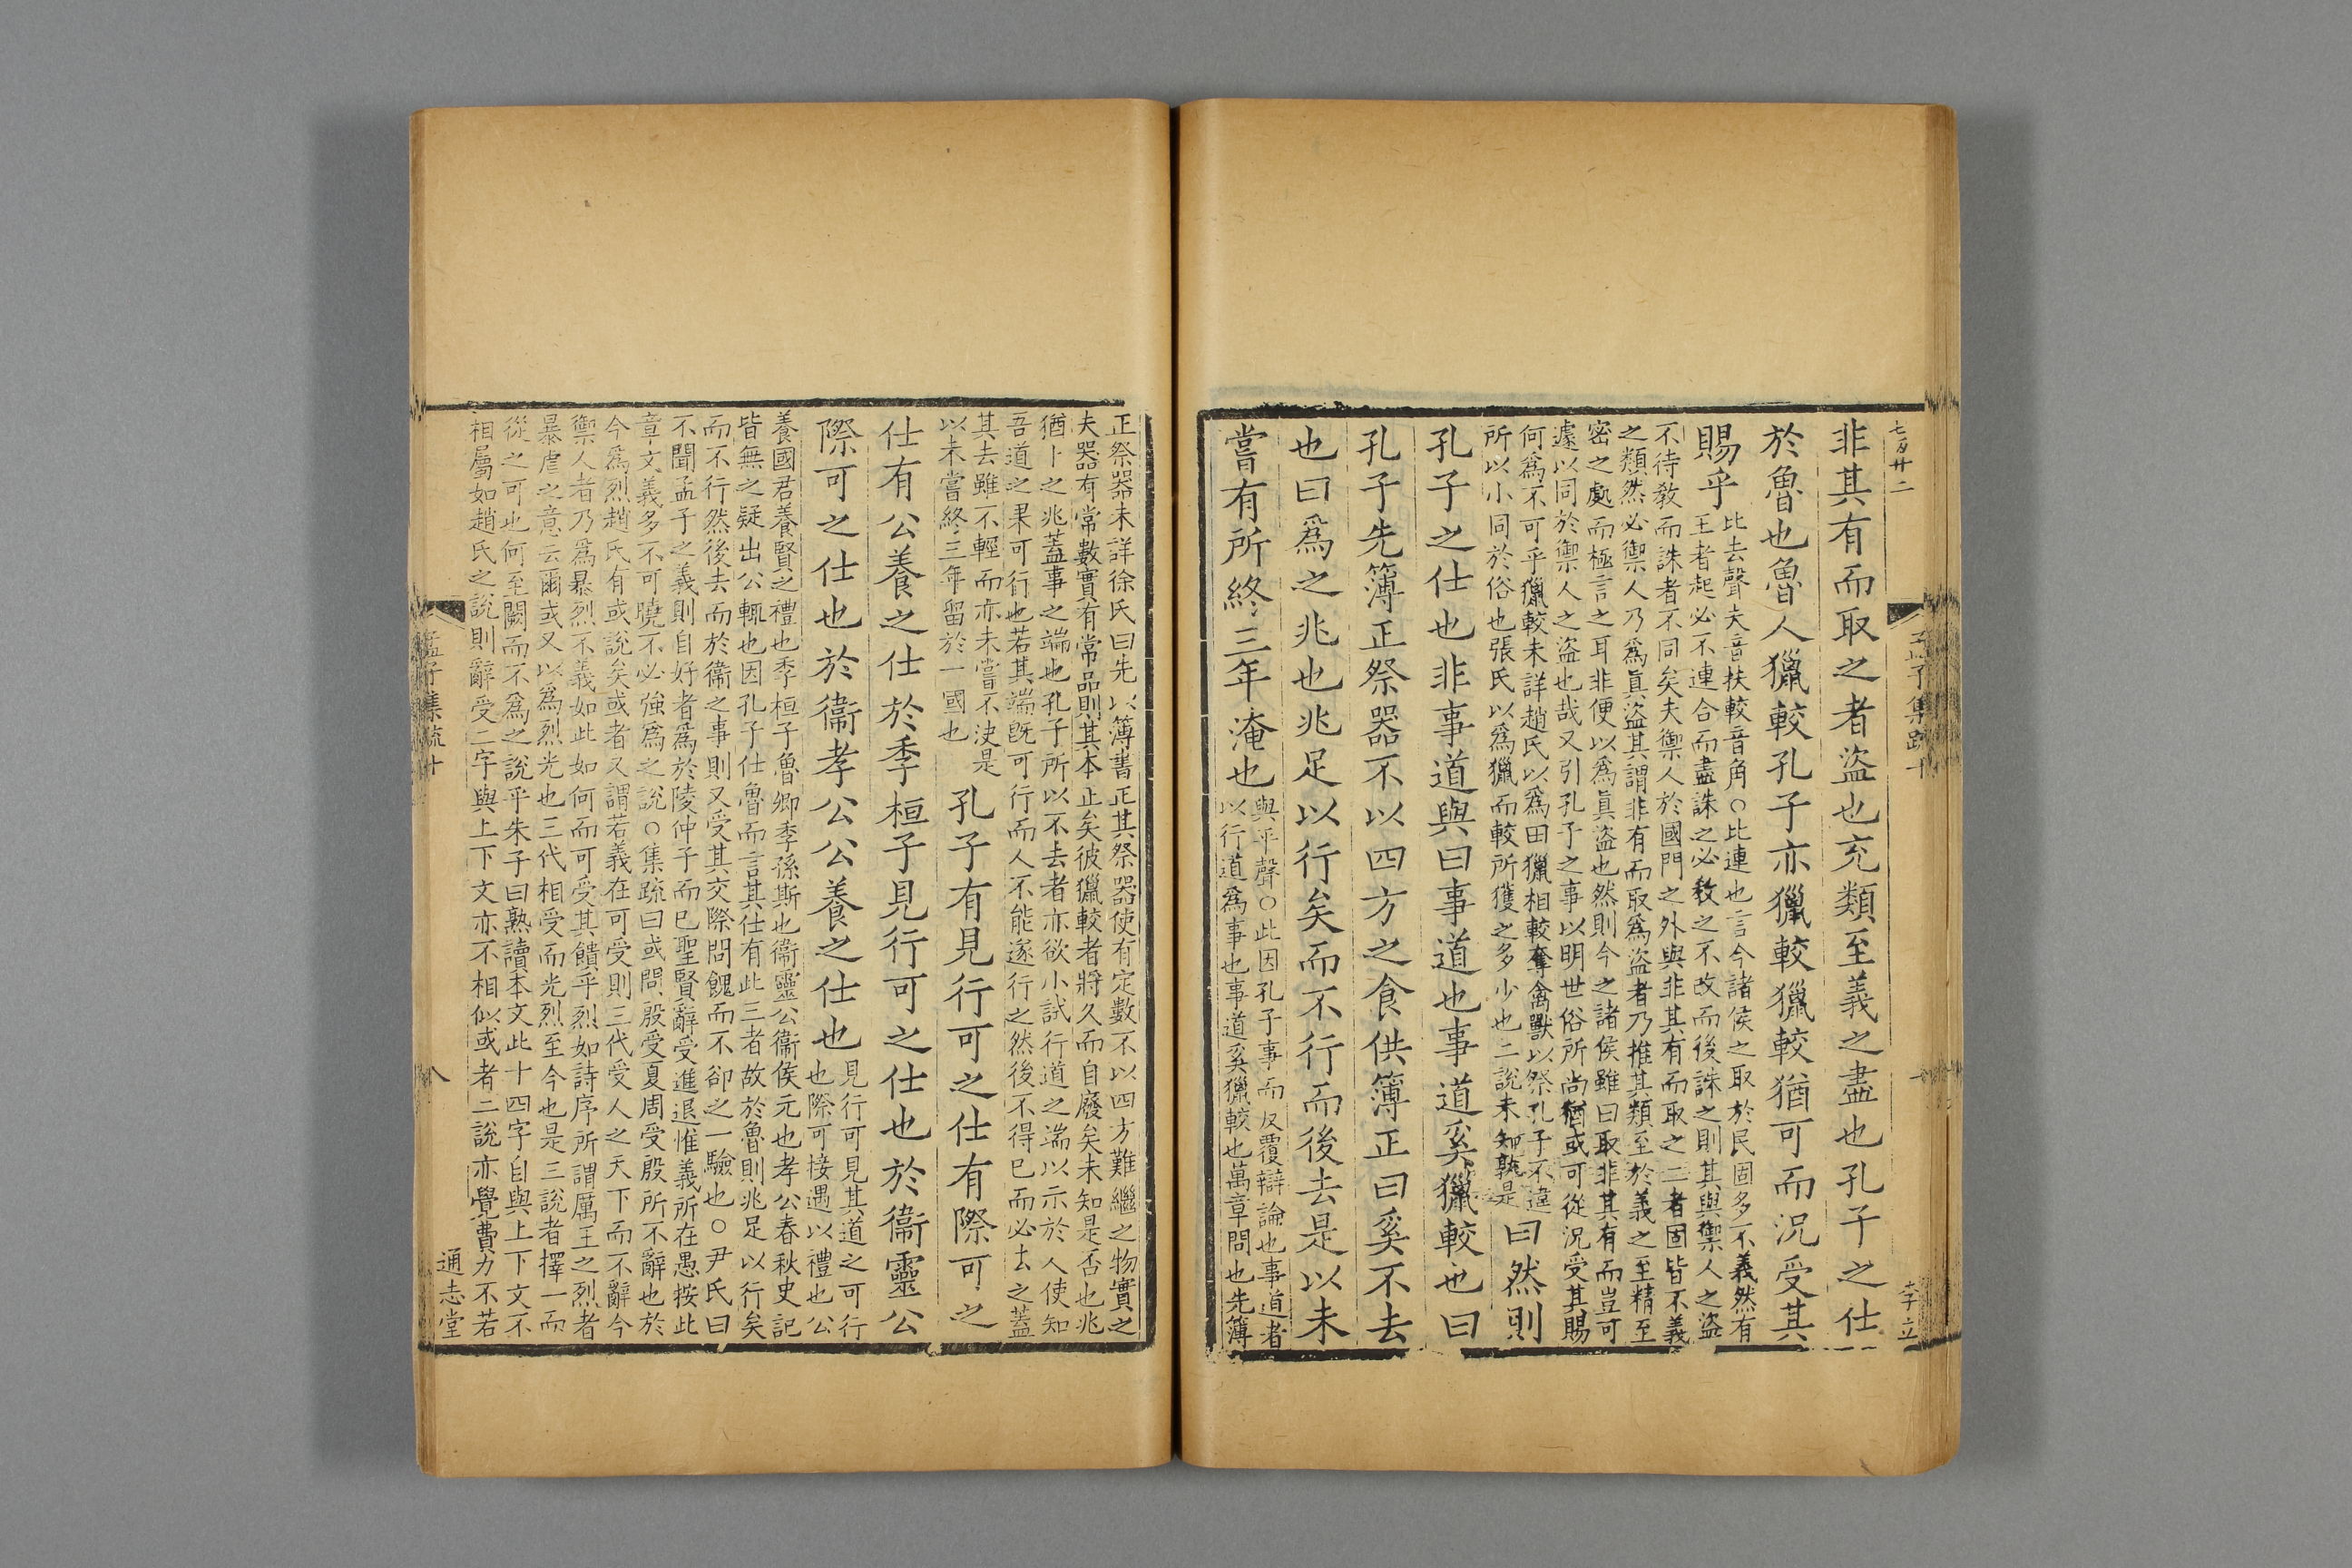 七百廿二
孟子集疏十
非其有而取之者盜也充類至義之盡也孔子之仕
於魯也魯人獵較孔子亦獵較獵較猶可而況受其
賜乎
比去聲夫音扶較音角○比連也言今諸侯之取於民固多不義然有
王者起必不連合而盡誅之必教之不改而後誅之則其與禦人之盜
不待教而誅者不同矣夫禦人於國門之外與非其有而取之二者固皆不義
之類然必禦人乃爲眞盜其謂非有而取爲盜者乃推其類至於義之至精至
密之處而極言之耳非便以爲眞盜也然則今之諸侯雖曰取非其有而豈可
遽以同於禦人之盜也哉又引孔子之事以明世俗所尚猶或可從況受其賜
何爲不可乎獵較未詳趙氏以爲田獵相較奪禽獸以祭孔子不違
所以小同於俗也張氏以爲獵而較所獲之多少也二說未知孰是
曰然則
孔子之仕也非事道與曰事道也事道奚獵較也曰
孔子先簿正祭器不以四方之食供簿正曰奚不去
也曰爲之兆也兆足以行矣而不行而後去是以未
嘗有所終三年淹也
與平聲○此因孔子事而反覆辯論也事道者
以行道爲事也事道奚獵較也萬章問也先簿
正祭器未詳徐氏曰先以簿書正其祭器使有定數不以四方難繼之物實之
夫器有常數實有常品則其本正矣彼獵較者將久而自廢矣未知是否也兆
猶卜之兆蓋事之端也孔子所以不去者亦欲小試行道之端以示於人使知
吾道之果可行也若其端旣可行而人不能遂行之然後不得已而必去之蓋
其去雖不輕而亦未嘗不決是
以未嘗終三年留於一國也
孔子有見行可之仕有際可之
仕有公養之仕於季桓子見行可之仕也於衞靈公
際可之仕也於衞孝公公養之仕也
見行可見其道之可行
也際可接遇以禮也公
養國君養賢之禮也季桓子魯卿季孫斯也衞靈公衞侯元也孝公春秋史記
皆無之疑出公輒也因孔子仕魯而言其仕有此三者故於魯則兆足以行矣
而不行然後去而於衞之事則又受其交際問餽而不卻之一驗也○尹氏曰
不聞孟子之義則自好者爲於陵仲子而已聖賢辭受進退惟義所在愚按此
章文義多不可曉不必強爲之說○集疏曰或問殷受夏周受殷所不辭也於
今爲烈趙氏有或說矣或者又謂若義在可受則三代受人之天下而不辭今
禦人者乃爲暴烈不義如此如何而可受其饋乎烈如詩序所謂厲王之烈者
暴虐之意云爾或又以爲烈光也三代相受而光烈至今也是三說者擇一而
從之可也何至闕而不爲之說乎朱子曰熟讀本文此十四字自與上下文不
相屬如趙氏之說則辭受二字與上下文亦不相似或者二說亦覺費力不若
孟子集疏十
八
通志堂